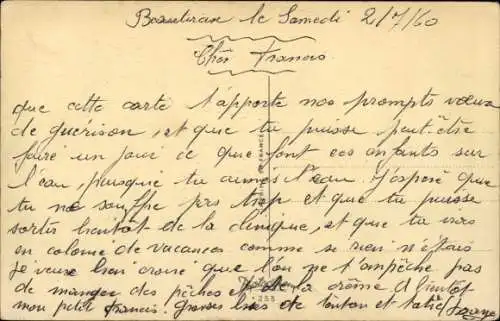 Beautiran le Samedi 2/7/60
Cher Francis
que cette carte t'apporte nos prompts vœux
de guérison, et que tu puisse peut-être
faire un jour ce que font ces enfants sur
l'eau, puisque tu aimes l'eau. J'espère que
tu ne souffre pas trop et que tu puisse
sortir bientôt de la clinique, et que tu iras
en colonie de vacances comme si rien n'était
je veux bien croire que l'on ne t'empêche pas
de manger des pêches et de la crème à bientôt
mon petit Francis! Grosses bises de tonton et tatie
FRANCE
253